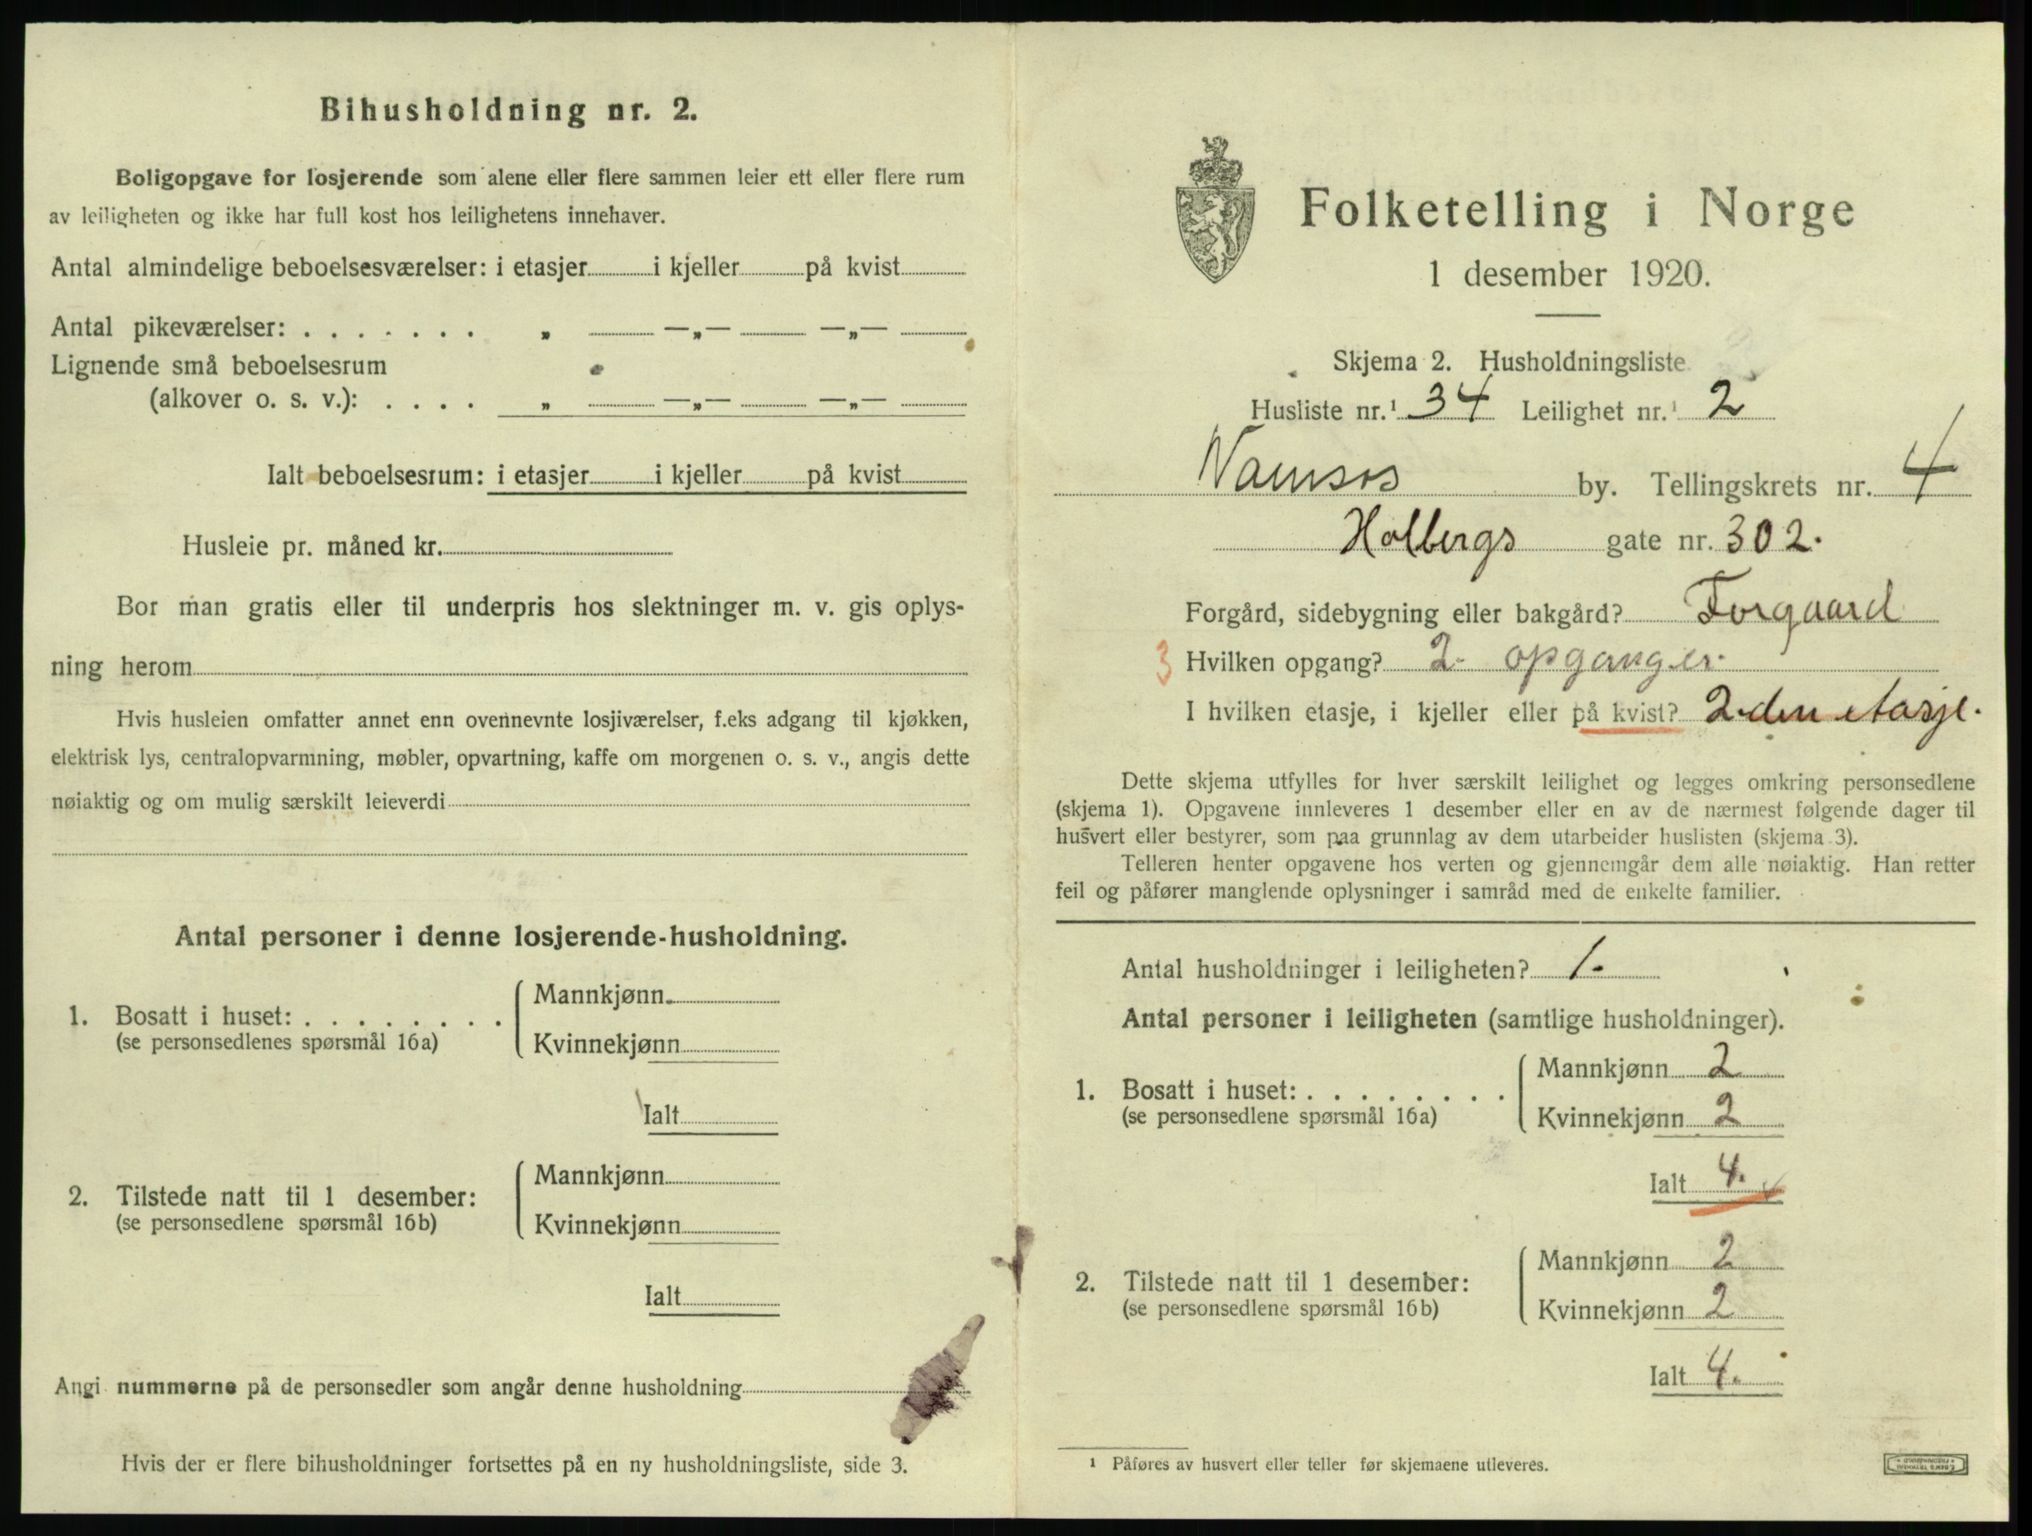 Bihusholdning nr. 2.
Boligopgave for losjerende som alene eller flere sammen leier ett eller flere rum
av leiligheten og ikke har full kost hos leilighetens innehaver.
Antal almindelige beboelsesværelser: i etasjer i kjeller på kvist
Antal pikeværelser: . . . . . . . „ —„— —„—
Lignende små beboelsesrum
(alkover o. s. v.): . . . . „ —„— —„—
Ialt beboelsesrum: i etasjer i kjeller på kvist
Husleie pr. måned kr.
Bor man gratis eller til underpris hos slektninger m. v. gis oplys-
ning herom
Hvis husleien omfatter annet enn ovennevnte losjiværelser, f.eks adgang til kjøkken,
elektrisk lys, centralopvarmning, møbler, opvartning, kaffe om morgenen o. s. v., angis dette
nøiaktig og om mulig særskilt leieverdi
Antal personer i denne losjerende-husholdning.
Mannkjønn
1. Bosatt i huset: . . . . . . . .
(se personsedlenes spørsmål 16a)
Kvinnekjønn
Ialt
Mannkjønn
2. Tilstede natt til 1 desember:
(se personsedlene spørsmål 16b)
Kvinnekjønn
Ialt
Angi nummerne på de personsedler som angår denne husholdning
Hvis der er flere bihusholdninger fortsettes på en ny husholdningsliste, side 3.
Folketelling i Norge
1 desember 1920.
Skjema 2. Husholdningsliste
Husliste nr.¹ 34 Leilighet nr.¹ 2
Namsos by. Tellingskrets nr. 4
Holbergs gate nr. 302.
Forgård, sidebygning eller bakgård? Forgaard
3 Hvilken opgang? 2- opganger.
I hvilken etasje, i kjeller eller på kvist? 2den etasje.
Dette skjema utfylles for hver særskilt leilighet og legges omkring personsedlene
(skjema 1). Opgavene innleveres 1 desember eller en av de nærmest følgende dager til
husvert eller bestyrer, som paa grunnlag av dem utarbeider huslisten (skjema 3).
Telleren henter opgavene hos verten og gjennemgår dem alle nøiaktig. Han retter
feil og påfører manglende oplysninger i samråd med de enkelte familier.
Antal husholdninger i leiligheten? 1.
Antal personer i leiligheten (samtlige husholdninger).
Mannkjønn 2
1. Bosatt i huset: . . . . . . . .
(se personsedlene spørsmål 16a)
Kvinnekjønn 2
Ialt 4.
Mannkjønn 2
2. Tilstede natt til 1 desember:
(se personsedlene spørsmål 16b)
Kvinnekjønn 2
Ialt 4.
¹ Påføres av husvert eller teller før skjemaene utleveres.